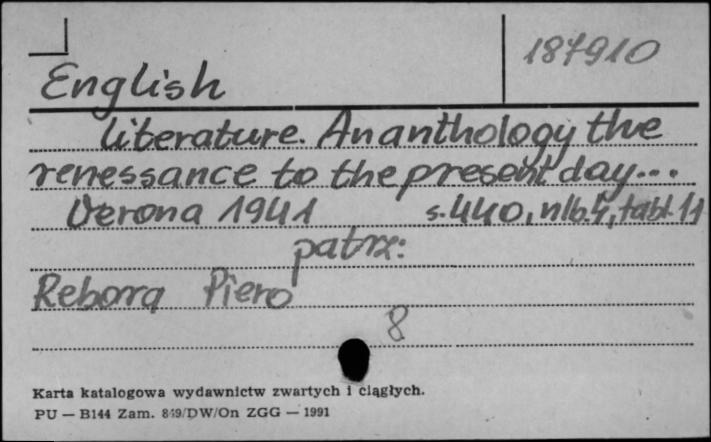 187910
English
literature. An anthology the
renessance to the present day...
Verona 1941 s. 440, nlb. 4, tabl. 11
patrz:
Rebora Piero
8
Karta katalogowa wydawnictw zwartych i ciągłych.
PU — B144 Zam. 849/DW/On ZGG — 1991